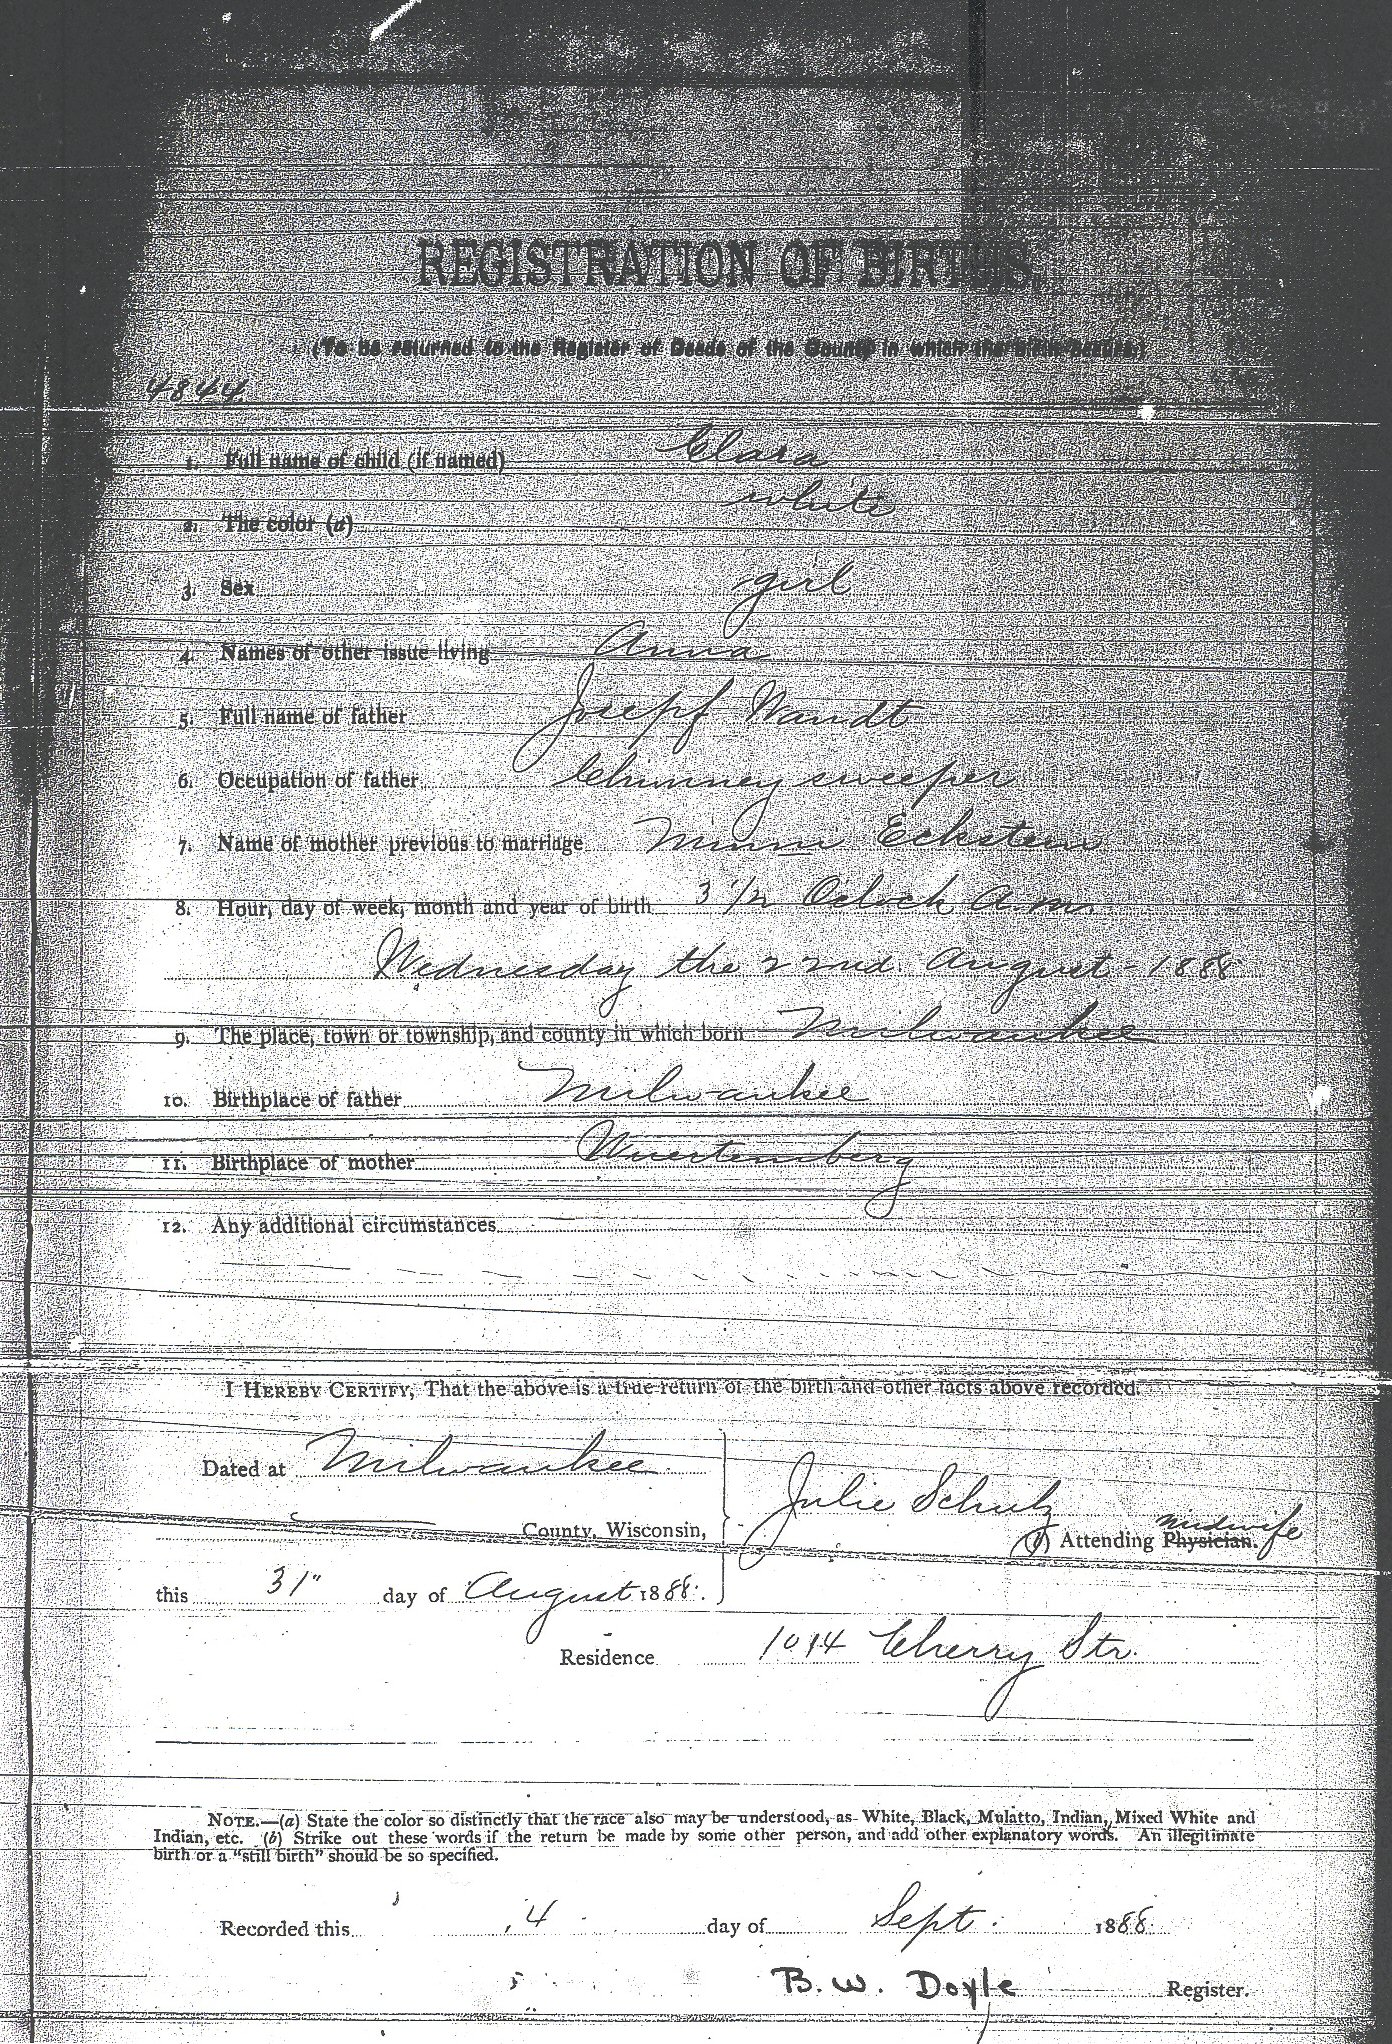 REGISTRATION OF BIRTHS.
(To be returned to the Register of Deeds of the County in which the birth occurs.)
4844
1. Full name of child (if named) Clara
2. The color (a) white
3. Sex girl
4. Names of other issue living Anna
5. Full name of father Josepf Wandt
6. Occupation of father Chimney sweeper
7. Name of mother previous to marriage Minni Eckstein
8. Hour, day of week, month and year of birth 3 1/2 Oclock A.m.
Wednesday the 22nd. August - 1888
9. The place, town or township, and county in which born Milwaukee
10. Birthplace of father Milwaukee
11. Birthplace of mother Wuertemberg
12. Any additional circumstances
I HEREBY CERTIFY, That the above is a true return of the birth and other facts above recorded.
Dated at Milwaukee
Julie Schulz
County, Wisconsin,
Attending Physician. midwife
this 31" day of August 1888.
Residence 1014 Cherry Str.
NOTE.—(a) State the color so distinctly that the race also may be understood, as White, Black, Mulatto, Indian, Mixed White and
Indian, etc. (b) Strike out these words if the return be made by some other person, and add other explanatory words. An illegitimate
birth or a "still birth" should be so specified.
Recorded this 4 day of Sept. 1888.
B. W. Doyle Register.